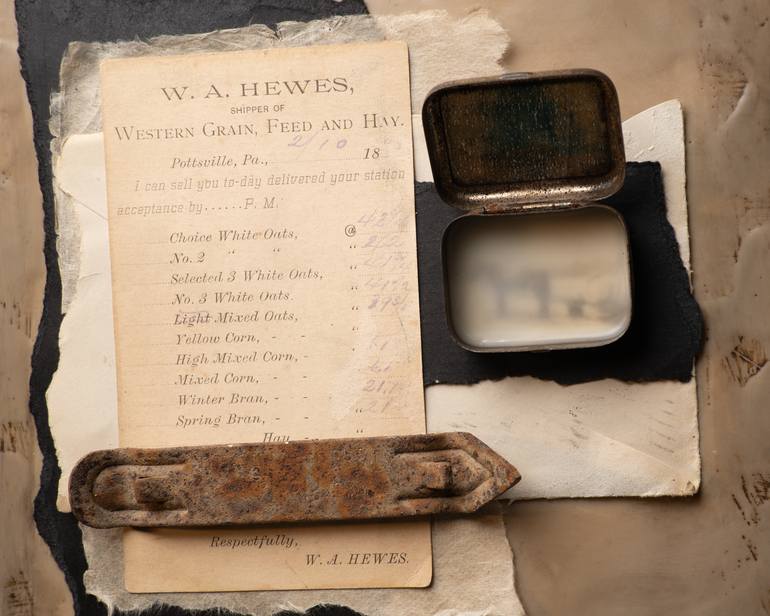 W. A. HEWES,
SHIPPER OF
WESTERN GRAIN, FEED AND HAY.
2/10
Pottsville, Pa., 18
I can sell you to-day delivered your station
acceptance by......P. M.
Choice White Oats, @
No. 2 " " "
Selected 3 White Oats, "
No. 3 White Oats. "
Light Mixed Oats, "
Yellow Corn, - - "
High Mixed Corn, - "
Mixed Corn, - - "
Winter Bran, - - "
Spring Bran, - - "
Hay
Respectfully,
W. A. HEWES.